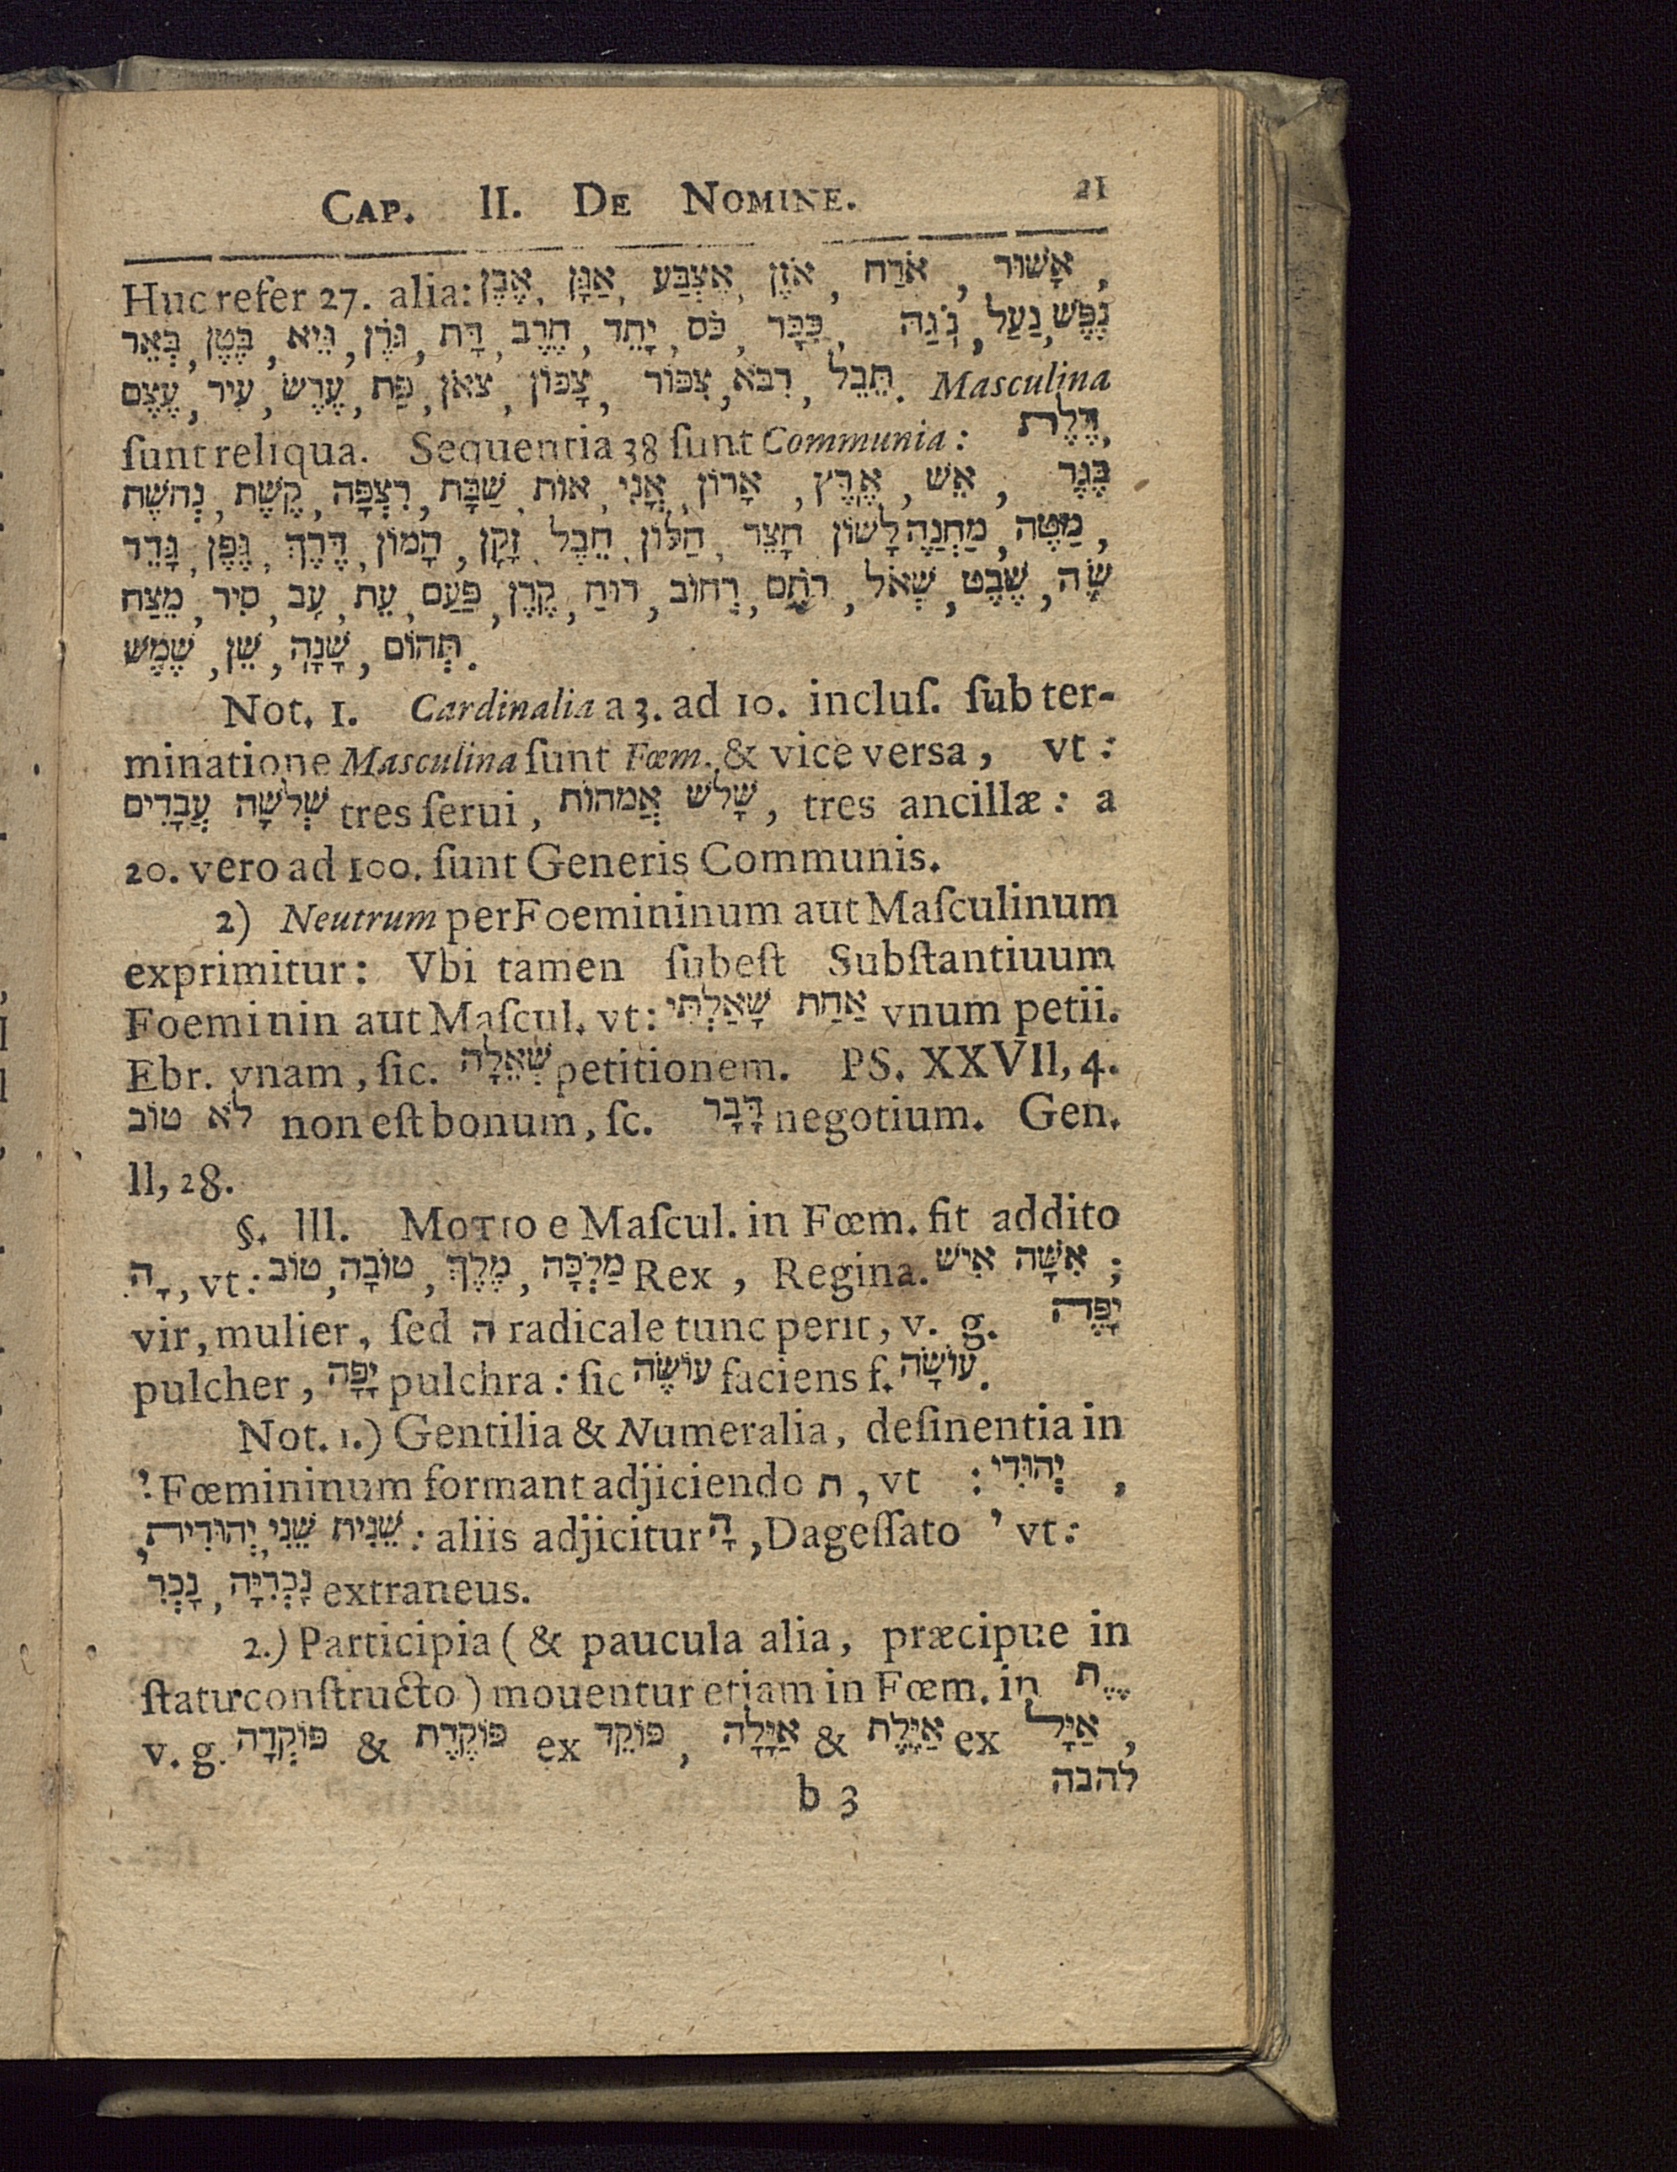 CAP. II. DE NOMINE. 21
Huc refer 27. alia: אֶבֶן, אַגָּן, אֶצְבַּע, אֹזֶן, אֹרַח, אָשׁוּר,
בְּאֵר, בֶּטֶן, גַּיְא, גֹּרֶן, דָּת, חֶרֶב, יָתֵד, כֹּס, כִּכָּר, נֹגַהּ, נַעַל, נֶפֶשׁ
עֶצֶם, עִיר, עֶרֶשׂ, פַּת, צֹאן, צָפוֹן, צִפּוֹר, רִבֹּא, תֵּבֵל. Masculina
ſunt reliqua. Sequentia 38 ſunt Communia: דֶּלֶת,
נְחשֶׁת, קֶשֶׁת, רִצְפָּה, שַׁבָּת, אוֹת, אֳנִי, אָרוֹן, אֶרֶץ, אֵשׁ, בֶּגֶד
גָּדֵר, גֶּפֶן, דֶּרֶךְ, הָמוֹן, זָקָן, חֵבֶל, חַלּוֹן, חָצֵר, לָשׁוֹן, מַחֲנֶה, מַטֶּה,
מֵצַח, סִיר, עָב, עֵת, פַּעַם, קֶרֶן, רוּחַ, רְחוֹב, רֹתֶם, שְׁאֹל, שֶׁבֶט, שֶׂה
שֶׁמֶשׁ, שֵׁן, שָׁנָה, תְּהוֹם.
Not. 1. Cardinalia a 3. ad 10. incluſ. ſub ter-
minatione Maſculina ſunt Fœm. & vice verſa, vt:
שְׁלֹשָׁה עֲבָדִים tres ſerui, שָׁלֹשׁ אֲמהוֹת, tres ancillæ: a
20. vero ad 100. ſunt Generis Communis.
2) Neutrum per Foemininum aut Maſculinum
exprimitur: Vbi tamen ſubeſt Subſtantiuum
Foeminin aut Maſcul. vt: אַחַת שָׁאַלְתִּי vnum petii.
Ebr. vnam, ſic. שְׁאֵלָה petitionem. PS. XXVII, 4.
לֹא טוֹב non eſt bonum, ſc. דָּבָר negotium. Gen.
II, 28.
§. III. MOTIO e Maſcul. in Fœm. fit addito
הָ, vt: טוֹב, טוֹבָה, מֶלֶךְ, מַלְכָּה Rex, Regina. אִישׁ אִשָּׁה;
vir, mulier, ſed ה radicale tunc perit, v. g. יָפֶה
pulcher, יָפָה pulchra: ſic עוֹשֶׂה faciens f. עוֹשָׂה.
Not. 1.) Gentilia & Numeralia, deſinentia in
ִי Fœmininum formant adjiciendo ת, vt : יְהוּדִי,
יְהוּדִית, שֵׁנִי שֵׁנִית: aliis adjicitur הָ, Dageſſato י vt:
נָכְרִ, נָכְרִיָּה extraneus.
2.) Participia (& paucula alia, præcipue in
ſtatu conſtructo) mouentur etiam in Fœm. in ֶ ֶת
v. g. פּוֹקְדָה & פּוֹקֶדֶת ex פּוֹקֵד, אַיָּלָה & אַיֶּלֶת ex אַיָּל,
b 3 להבה